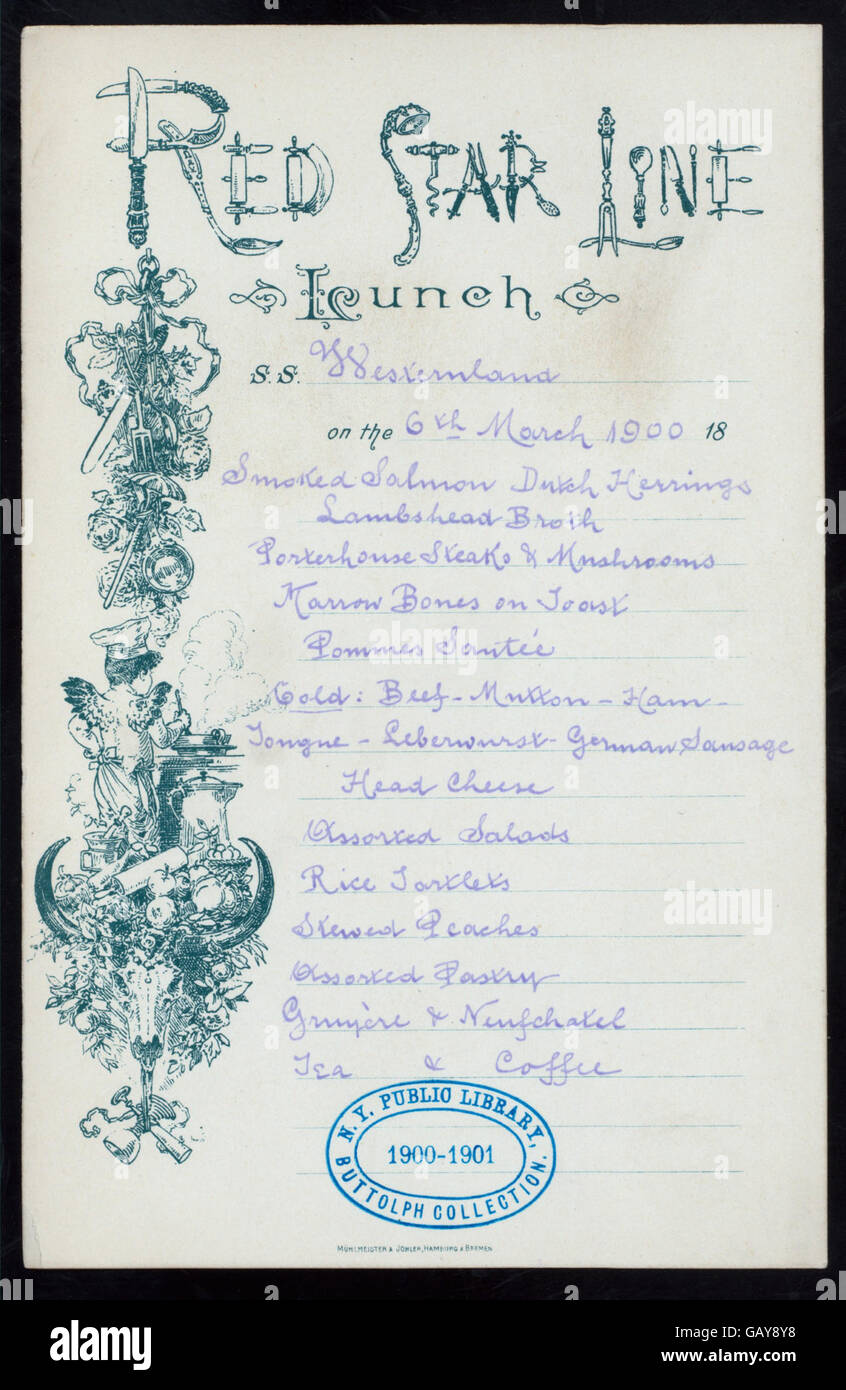 RED STAR LINE
Lunch
S.S. Westernland
on the 6th March 1900 18
Smoked Salmon Dutch Herrings
Lambshead Broth
Porterhouse Steaks & Mushrooms
Marrow Bones on Toast
Pommes Santée
Cold: Beef - Mutton - Ham -
Tongue - Leberwurst - German Sausage
Head Cheese
Assorted Salads
Rice Tartlets
Stewed Peaches
Assorted Pastry
Gruyère & Neufchatel
Tea & Coffee
N. Y. PUBLIC LIBRARY,
1900-1901
BUTTOLPH COLLECTION.
MÜHLMEISTER & JOHLER, HAMBURG & BREMEN
alamy
alamy stock photo
GAY8Y8
www.alamy.com